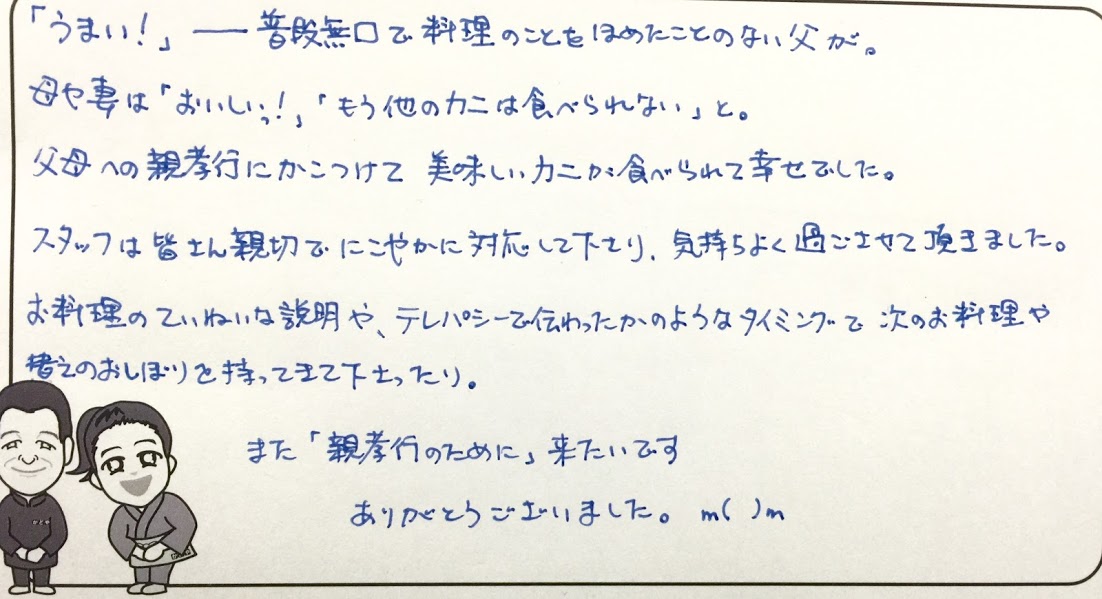 「うまい！」――普段無口で料理のことをほめたことのない父が。
母や妻は「おいしいっ！」「もう他のカニは食べられない」と。
父母への親孝行にかこつけて 美味しいカニが食べられて幸せでした。
スタッフは皆さん親切でにこやかに対応して下さり、気持ちよく過ごさせて頂きました。
お料理のていねいな説明や、テレパシーで伝わったかのようなタイミングで 次のお料理や
替えのおしぼりを持ってきて下さったり。
また「親孝行のために」来たいです
ありがとうございました。 m( )m